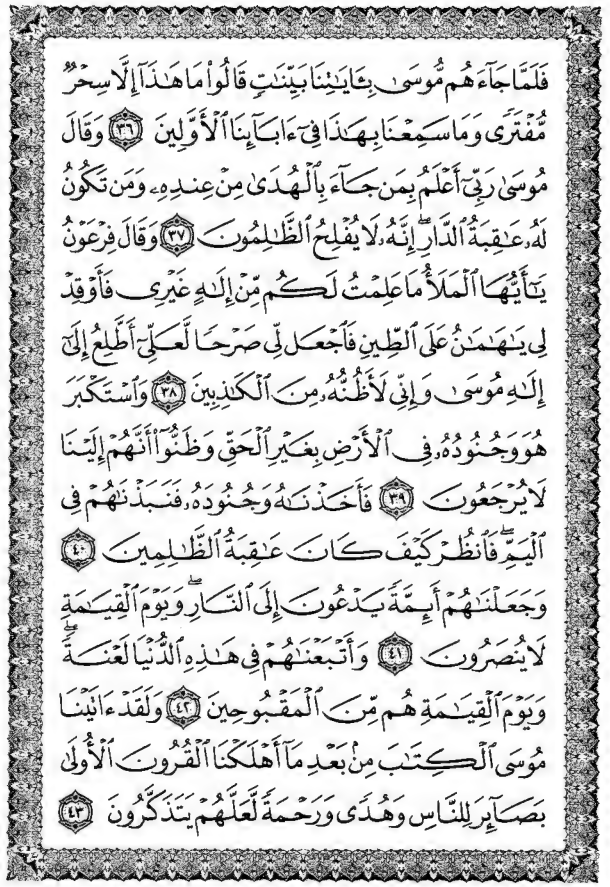 فَلَمَّا جَآءَهُم مُّوسَىٰ بِـَٔايَـٰتِنَا بَيِّنَـٰتٍ قَالُوا۟ مَا هَـٰذَآ إِلَّا سِحْرٌ
مُّفْتَرًى وَمَا سَمِعْنَا بِهَـٰذَا فِىٓ ءَابَآئِنَا ٱلْأَوَّلِينَ ٣٦ وَقَالَ
مُوسَىٰ رَبِّىٓ أَعْلَمُ بِمَن جَآءَ بِٱلْهُدَىٰ مِنْ عِندِهِۦ وَمَن تَكُونُ
لَهُۥ عَـٰقِبَةُ ٱلدَّارِ ۖ إِنَّهُۥ لَا يُفْلِحُ ٱلظَّـٰلِمُونَ ٣٧ وَقَالَ فِرْعَوْنُ
يَـٰٓأَيُّهَا ٱلْمَلَأُ مَا عَلِمْتُ لَكُم مِّنْ إِلَـٰهٍ غَيْرِى فَأَوْقِدْ
لِى يَـٰهَـٰمَـٰنُ عَلَى ٱلطِّينِ فَٱجْعَل لِّى صَرْحًا لَّعَلِّىٓ أَطَّلِعُ إِلَىٰٓ
إِلَـٰهِ مُوسَىٰ وَإِنِّى لَأَظُنُّهُۥ مِنَ ٱلْكَـٰذِبِينَ ٣٨ وَٱسْتَكْبَرَ
هُوَ وَجُنُودُهُۥ فِى ٱلْأَرْضِ بِغَيْرِ ٱلْحَقِّ وَظَنُّوٓا۟ أَنَّهُمْ إِلَيْنَا
لَا يُرْجَعُونَ ٣٩ فَأَخَذْنَـٰهُ وَجُنُودَهُۥ فَنَبَذْنَـٰهُمْ فِى
ٱلْيَمِّ ۖ فَٱنظُرْ كَيْفَ كَانَ عَـٰقِبَةُ ٱلظَّـٰلِمِينَ ٤٠
وَجَعَلْنَـٰهُمْ أَئِمَّةً يَدْعُونَ إِلَى ٱلنَّارِ ۖ وَيَوْمَ ٱلْقِيَـٰمَةِ
لَا يُنصَرُونَ ٤١ وَأَتْبَعْنَـٰهُمْ فِى هَـٰذِهِ ٱلدُّنْيَا لَعْنَةً ۖ
وَيَوْمَ ٱلْقِيَـٰمَةِ هُم مِّنَ ٱلْمَقْبُوحِينَ ٤٢ وَلَقَدْ ءَاتَيْنَا
مُوسَى ٱلْكِتَـٰبَ مِنۢ بَعْدِ مَآ أَهْلَكْنَا ٱلْقُرُونَ ٱلْأُولَىٰ
بَصَآئِرَ لِلنَّاسِ وَهُدًى وَرَحْمَةً لَّعَلَّهُمْ يَتَذَكَّرُونَ ٤٣